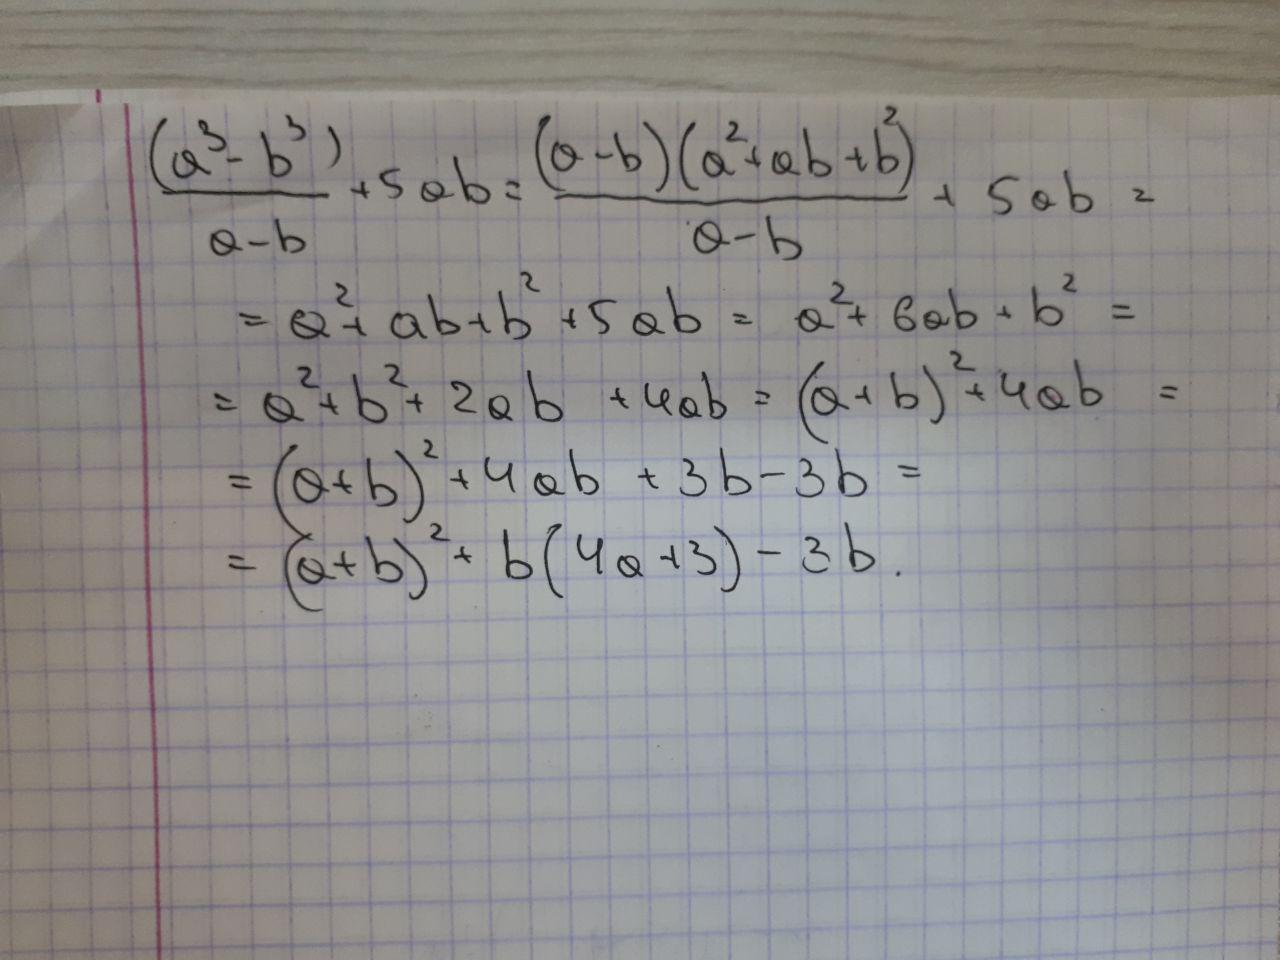 (a³-b³)/(a-b) + 5ab = (a-b)(a²+ab+b²)/(a-b) + 5ab =
= a²+ab+b²+5ab = a²+6ab+b² =
= a²+b²+2ab+4ab = (a+b)²+4ab =
= (a+b)²+4ab+3b-3b =
= (a+b)²+b(4a+3)-3b.